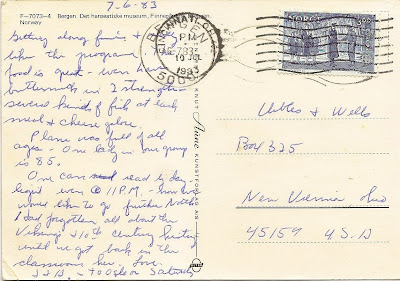 7-6-83
F-7073-4 Bergen. Det hanseatiske museum, Finne
Norway
Getting along fine &
like the program
food is great - even
buttermilk in 2 strengths -
several kinds of fish at each
meal & cheese galore.
Plane was full of all
ages - One lady in our group
is 85.
One can read by day-
light even @ 11 P.M. - how
would like to go further North
I had forgotten all about the
Vikings & 10th century history
until we got back in the
classrooms here. Love.
- to Oslo on Saturday
KNUT Aune KUNSTFORLAG AS
PM
10 JUL
1983
500
NORGE
&  Wells
Box 325
New Vienna, Ohio
45159 U.S.A